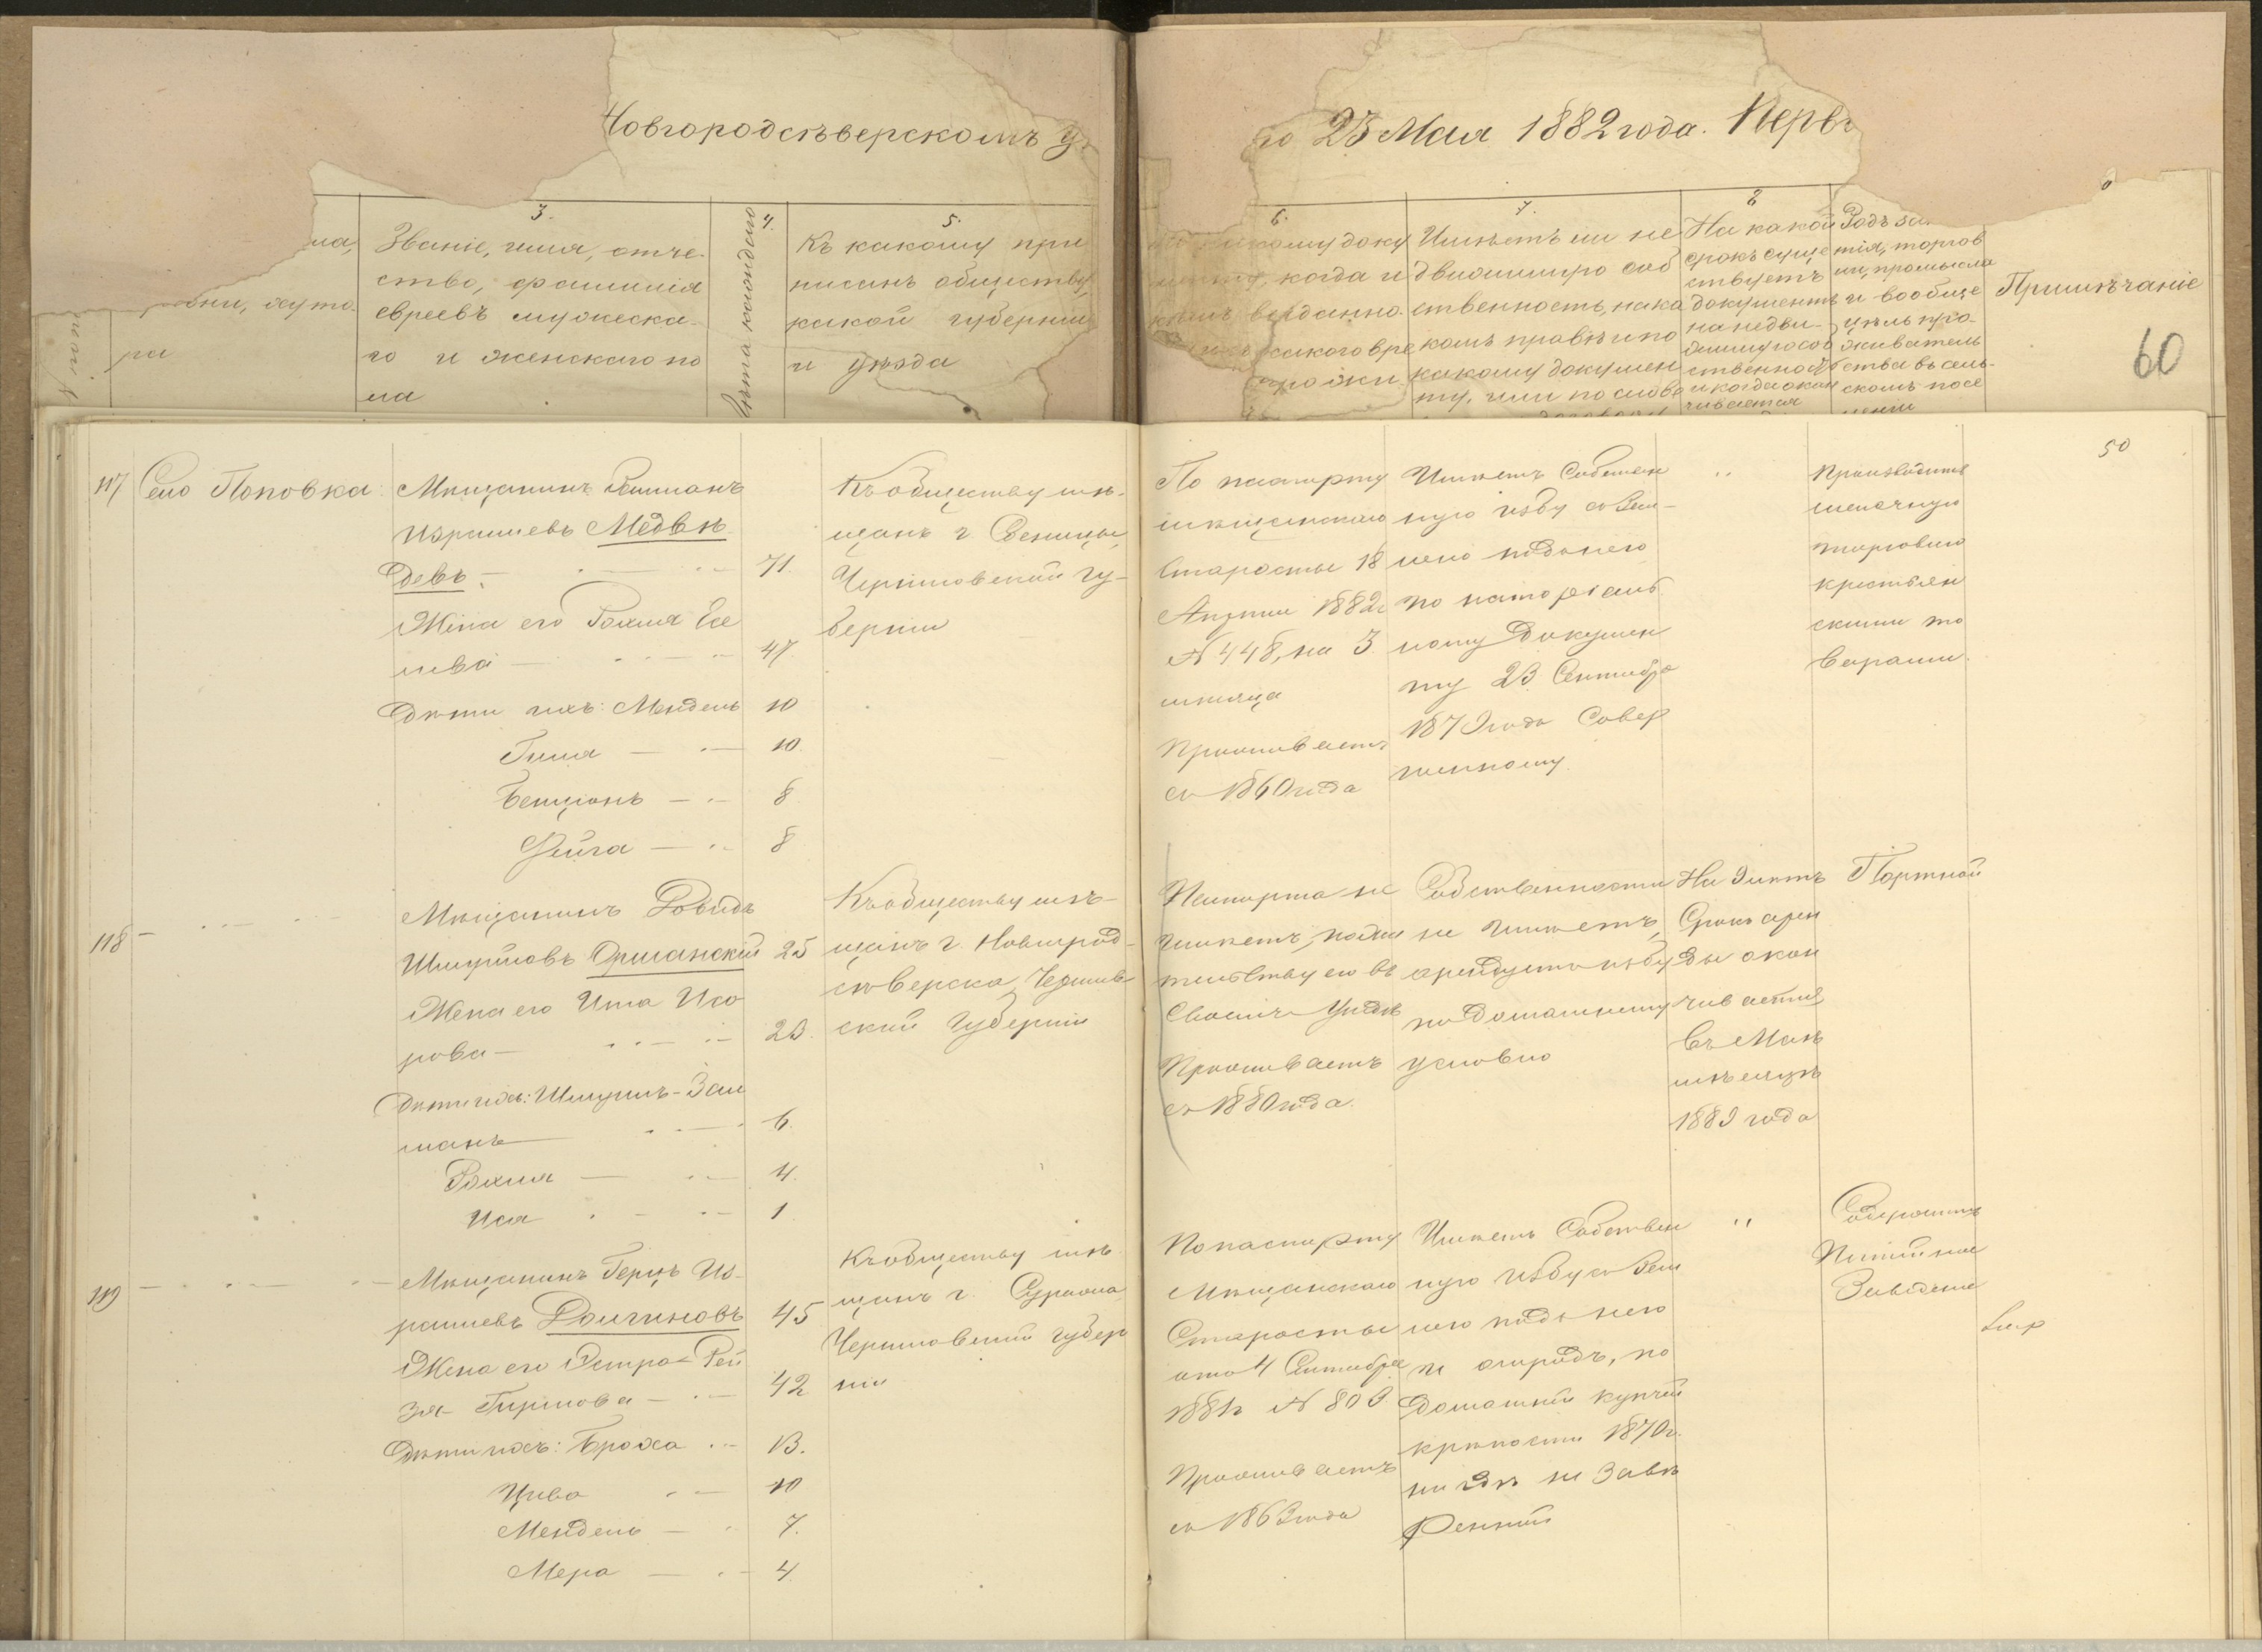 Новгородсѣверскомъ
23 Мая 1882 года. Перв
3.
4.
5.
Званіе, имя, отче
ство, фамилія
евреевъ мужеска-
го и женскаго по
ла
Лѣта каждаго
Къ какому при
писанъ обществу,
какой губерніи
и уѣзда
ра
6.
7.
8
какому доку
когда и
кѣмъ выданно
какого вре
прожи
Имѣетъ ли не
движимую соб
ственность, на ка
комъ правѣ и по
какому докумен
ту, или по слове
На какой
срокъ суще
ствуетъ
документъ
на недви-
жимую соб
ственность
и когда окан
чивается
Родъ за
тія, торгов
ли, промысла
и вообще
цѣль про-
живатель
ства въ сель-
скомъ посе
леніи
Примѣчаніе
60
50
117
Село Поповка
Мѣщанинъ Залманъ
Израилевъ Медвѣ
девъ 71
Жена его Рохля Есе
лева 47
Дѣти ихъ: Мендель 10
Гиля 10
Бенціонъ 8
Фейга 8
Къ обществу мѣ-
щанъ г. Сосницы,
Черниговской гу-
берніи
По паспорту
мѣщанскаго
Старосты 18
Апрѣля 1882 г
№ 448, на 3
мѣсяца
Проживаетъ
съ 1860 года
Имѣетъ Собствен
ную избу съ Зем-
лею подъ нею
по нотаріаль
ному Докумен
ту 23 Сентября
1879 года Совер
шенному
"
Производитъ
мелочную
торговлю
крестьян
скими то
варами
118
Мѣщанинъ Довидъ
Шмуйловъ Оршанскій 25
Жена его Ита Исо
рова 23
Дѣти ихъ: Шмуилъ-Зал
манъ 6
Рохля 4
Ися 1
Къ обществу мѣ-
щанъ г. Новгород-
сѣверска, Чернигов
ской Губерніи
Паспорта не
имѣетъ, по жи
тельству его въ
Своемъ Уѣздѣ
Проживаетъ
съ 1880 года
Собственности
не имѣетъ,
арендуетъ избу
по домашнему
условію
На 3 лѣтъ
Срокъ арен
ды окан
чивается
въ Маѣ
мѣсяцѣ
1883 года
Портной
119
Мѣщанинъ Герцъ Из-
раилевъ Долгиновъ 45
Жена его Эстра-Рей
зя Гиршова 42
Дѣти ихъ: Броха 13.
Цива 10
Мендель 7.
Мера 4
Къ обществу мѣ
щанъ г. Суража
Черниговской губер
ніи
По паспорту
Мѣщанскаго
Старосты
отъ 4 Сентября
1881 г № 803
Проживаетъ
съ 1863 года
Имѣетъ Собствен
ную избу съ Зем
лею подъ нею
и огородъ, по
Домашней купчей
крѣпости 1870 г.
нигдѣ не Завѣ
ренной
"
Содержитъ
Питейное
Заведеніе